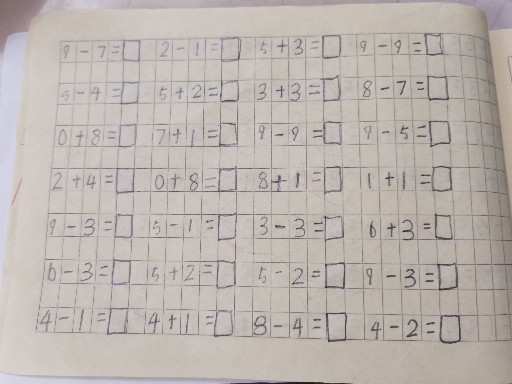 9-7=□ 2-1=□ 5+3=□ 9-9=□
5-4=□ 5+2=□ 3+3=□ 8-7=□
0+8=□ 7+1=□ 9-9=□ 9-5=□
2+4=□ 0+8=□ 8+1=□ 1+1=□
9-3=□ 5-1=□ 3-3=□ 6+3=□
6-3=□ 5+2=□ 5-2=□ 9-3=□
4-1=□ 4+1=□ 8-4=□ 4-2=□